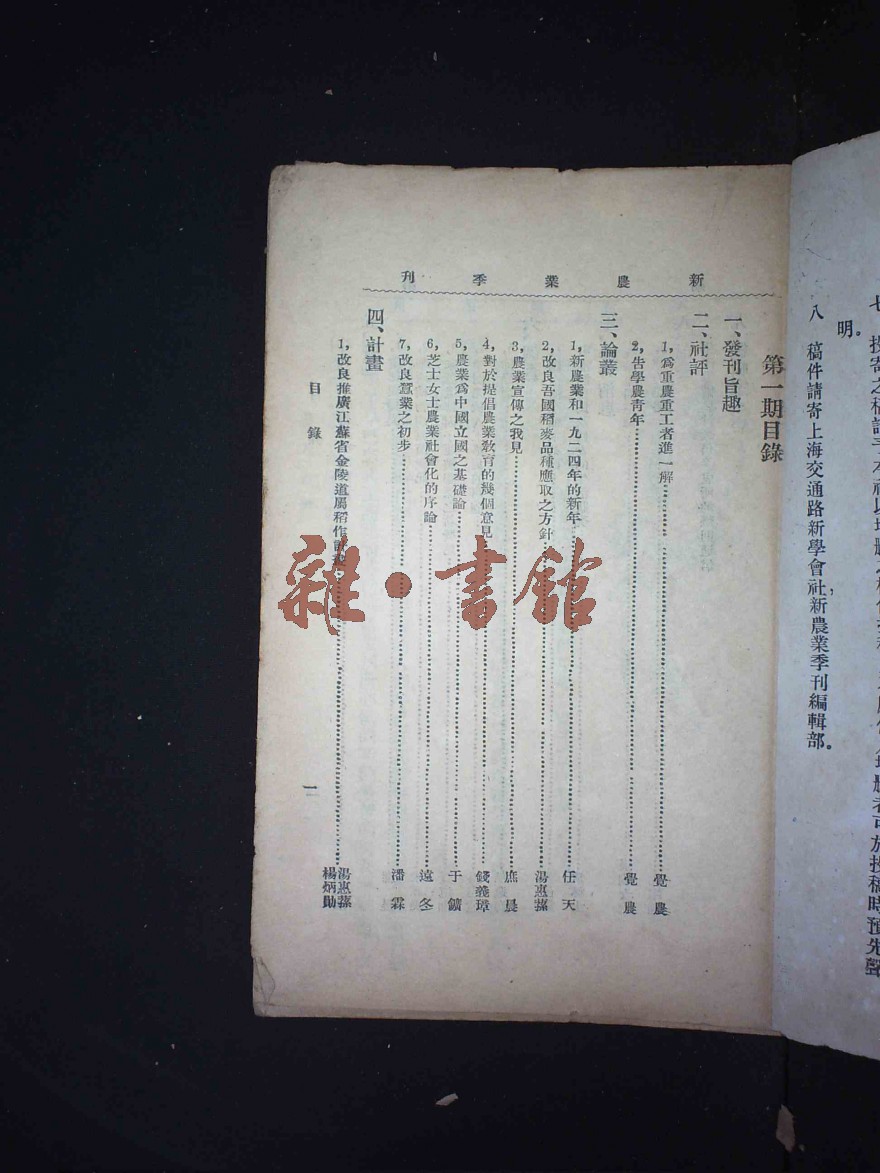 明。
八 稿件請寄上海交通路新學會社，新農業季刊編輯部。
新農業季刊
第一期目錄
一、發刊旨趣
二、社評
1，爲重農重工者進一解 覺農
2，吿學農青年 覺農
三、論叢
1，新農業和一九二四年的新年 任天
2，改良吾國稻麥品種應取之方針 湯惠蓀
3，農業宣傳之我見 庶晨
4，對於提倡農業敎育的幾個意見 錢義璋
5，農業爲中國立國之基礎論 于鑛
6，芝士女士農業社會化的序論 遠冬
7，改良蠶業之初步 潘霖
四、計畫
1，改良推廣江蘇省金陵道屬稻作計 湯惠蓀 楊炳勛
目錄
一
雜·書館